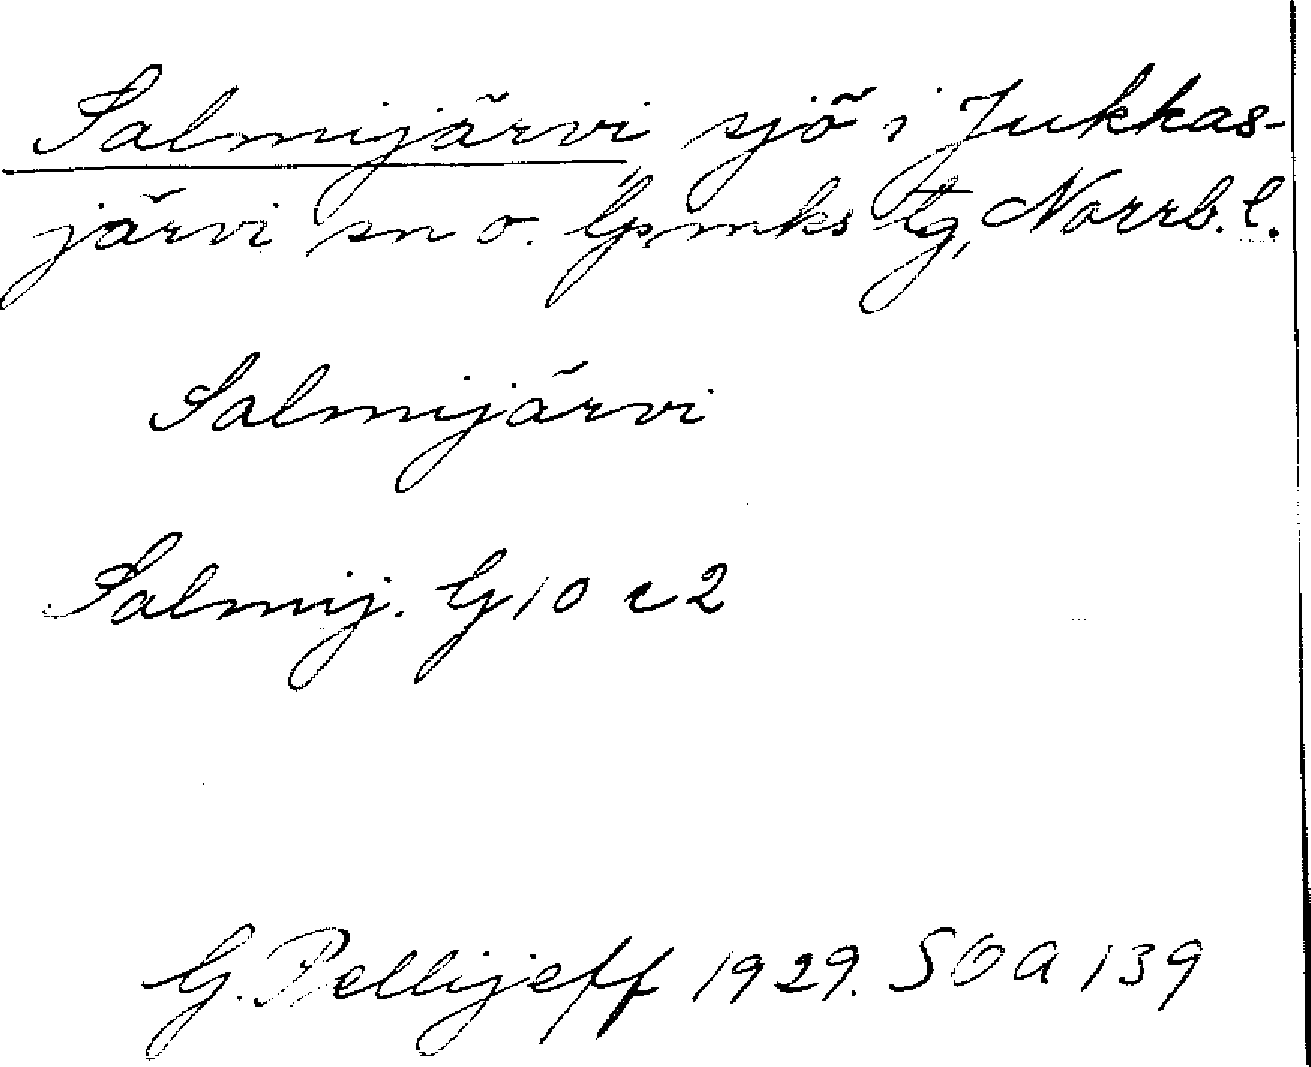 Salmijärvi, sjö i Jukkas-
järvi sn o. lpmks tg, Norrb. l.
Salmijärvi
Salmij. G 10 c 2
G. Pellijeff 1929. SOA 139